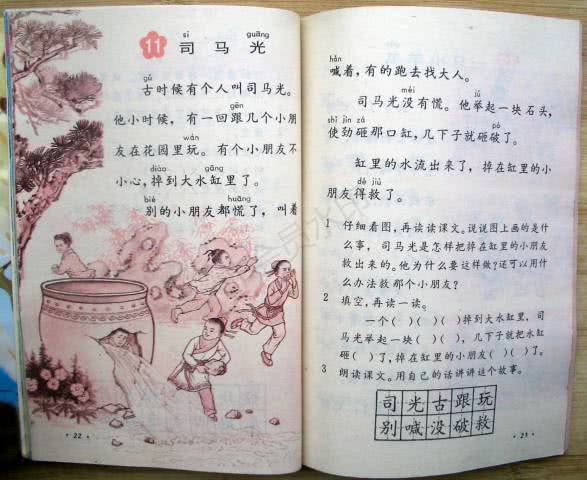 sī guāng
11 司马光
gǔ
古时候有个人叫司马光。
gēn
他小时候，有一回跟几个小朋
wán
友在花园里玩。有个小朋友不
diào gāng
小心，掉到大水缸里了。
bié huāng
别的小朋友都慌了，叫着
·22·
hǎn
喊着，有的跑去找大人。
méi jǔ
司马光没有慌。他举起一块石头，
shǐ jìn zá pò
使劲砸那口缸，几下子就砸破了。
缸里的水流出来了，掉在缸里的小
dé jiù
朋友得救了。
1 仔细看图，再读读课文。说说图上画的是什
么事，司马光是怎样把掉在缸里的小朋友
救出来的。他为什么要这样做？还可以用什
么办法救那个小朋友？
2 填空，再读一读。
一个( )( )( )掉到大水缸里，司
马光举起一块( )( )，几下子就把水缸
砸( )了，掉在缸里的小朋友( )( )了。
3 朗读课文。用自己的话讲讲这个故事。
司光古跟玩
别喊没破救
·23·